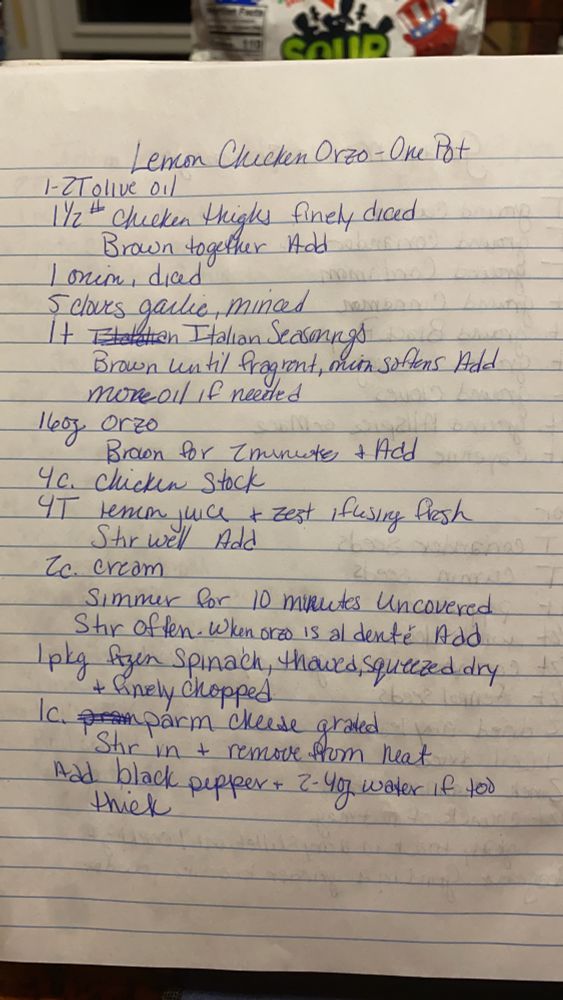 SOUR
Lemon Chicken Orzo - One Pot
1-2T olive oil
1 1/2 # chicken thighs finely diced
Brown together Add
1 onion, diced
5 cloves garlic, minced
1t Italian Seasonings
Brown until fragrent, onion softens Add
more oil if needed
16oz orzo
Brown for 2 minutes + Add
4c. chicken stock
4T lemon juice + zest if using fresh
Stir well Add
2c. cream
Simmer for 10 minutes Uncovered
Stir often. When orzo is al denté Add
1 pkg frozen spinach, thawed, squeezed dry
+ finely chopped
1c. parm cheese grated
Stir in + remove from heat
Add black pepper + 2-4oz water if too
thick